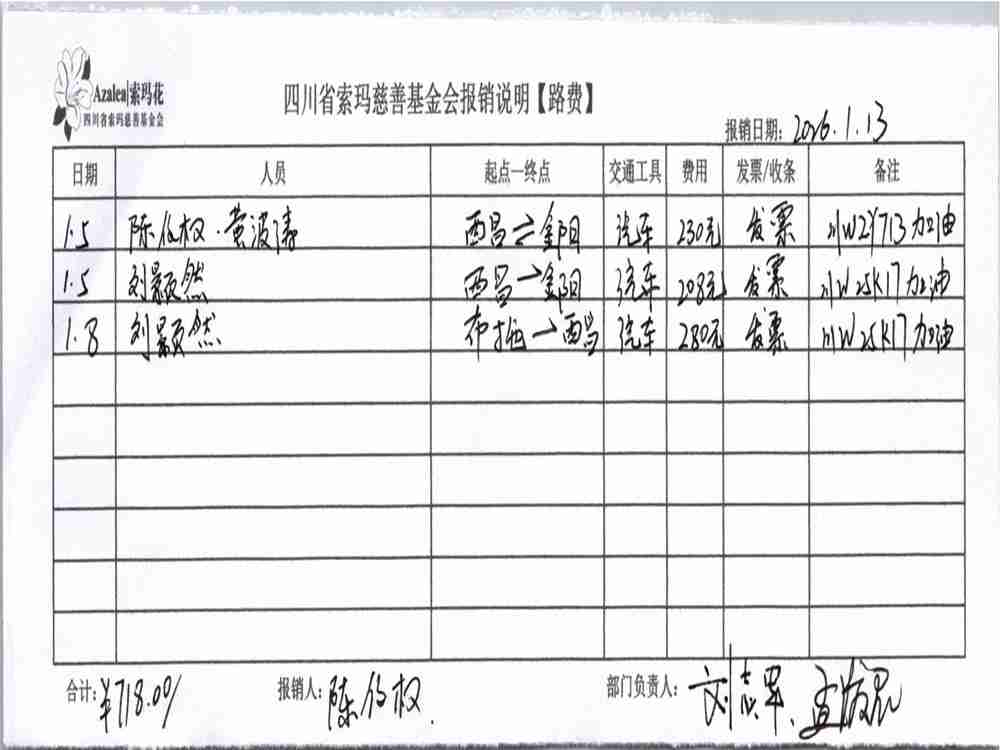 Azalea|索玛花
四川省索玛慈善基金会
四川省索玛慈善基金会报销说明【路费】
报销日期：2026.1.13
日期 人员 起点—终点 交通工具 费用 发票/收条 备注
1.5 陈伍权·黄波涛 西昌⇌金阳 汽车 230元 发票 川W2Y713加油
1.5 刘颢然 西昌→金阳 汽车 208元 发票 川W25K17加油
1.8 刘颢然 布拖→西昌 汽车 280元 发票 川W25K17加油
合计：¥718.00/ 报销人：陈伍权. 部门负责人：刘志军、